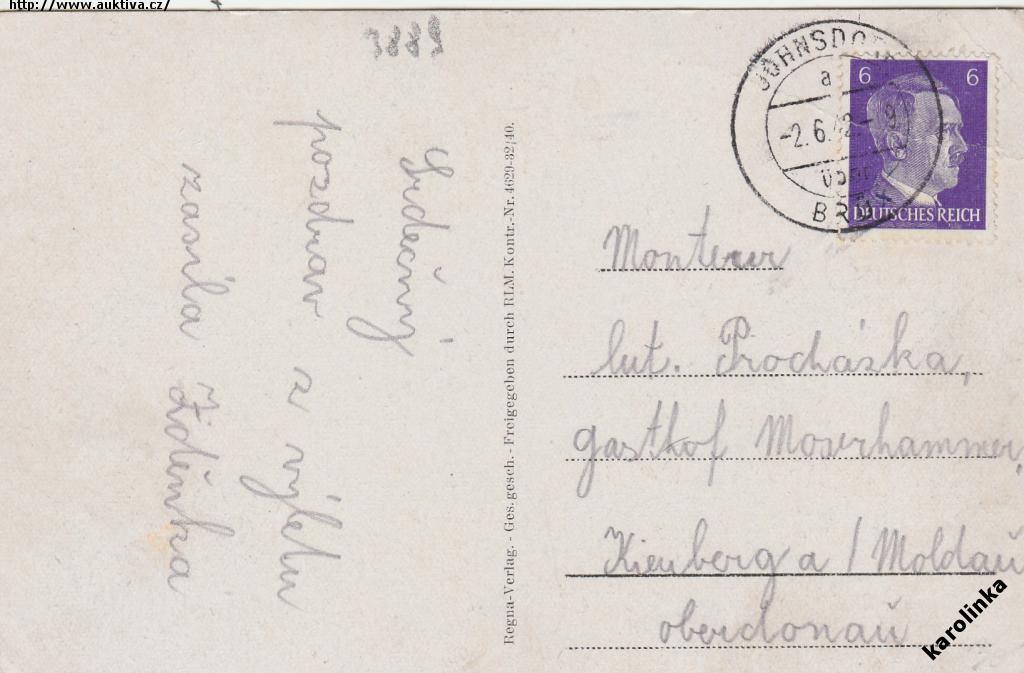 http://www.auktiva.cz/
3889
Srdečný
pozdrav
z výletu
zasíla Zdeňka
Regna-Verlag. - Ges. gesch. - Freigegeben durch RLM. Kontr.-Nr. 4629-32/40.
JOHNSDORF
a
-2.6.42.- 9
über
BRÜX
6 6
DEUTSCHES REICH
Monteur
lut. Procháska,
gasthof Moserhammer,
Kienberg a/Moldau
oberdonau
karolinka